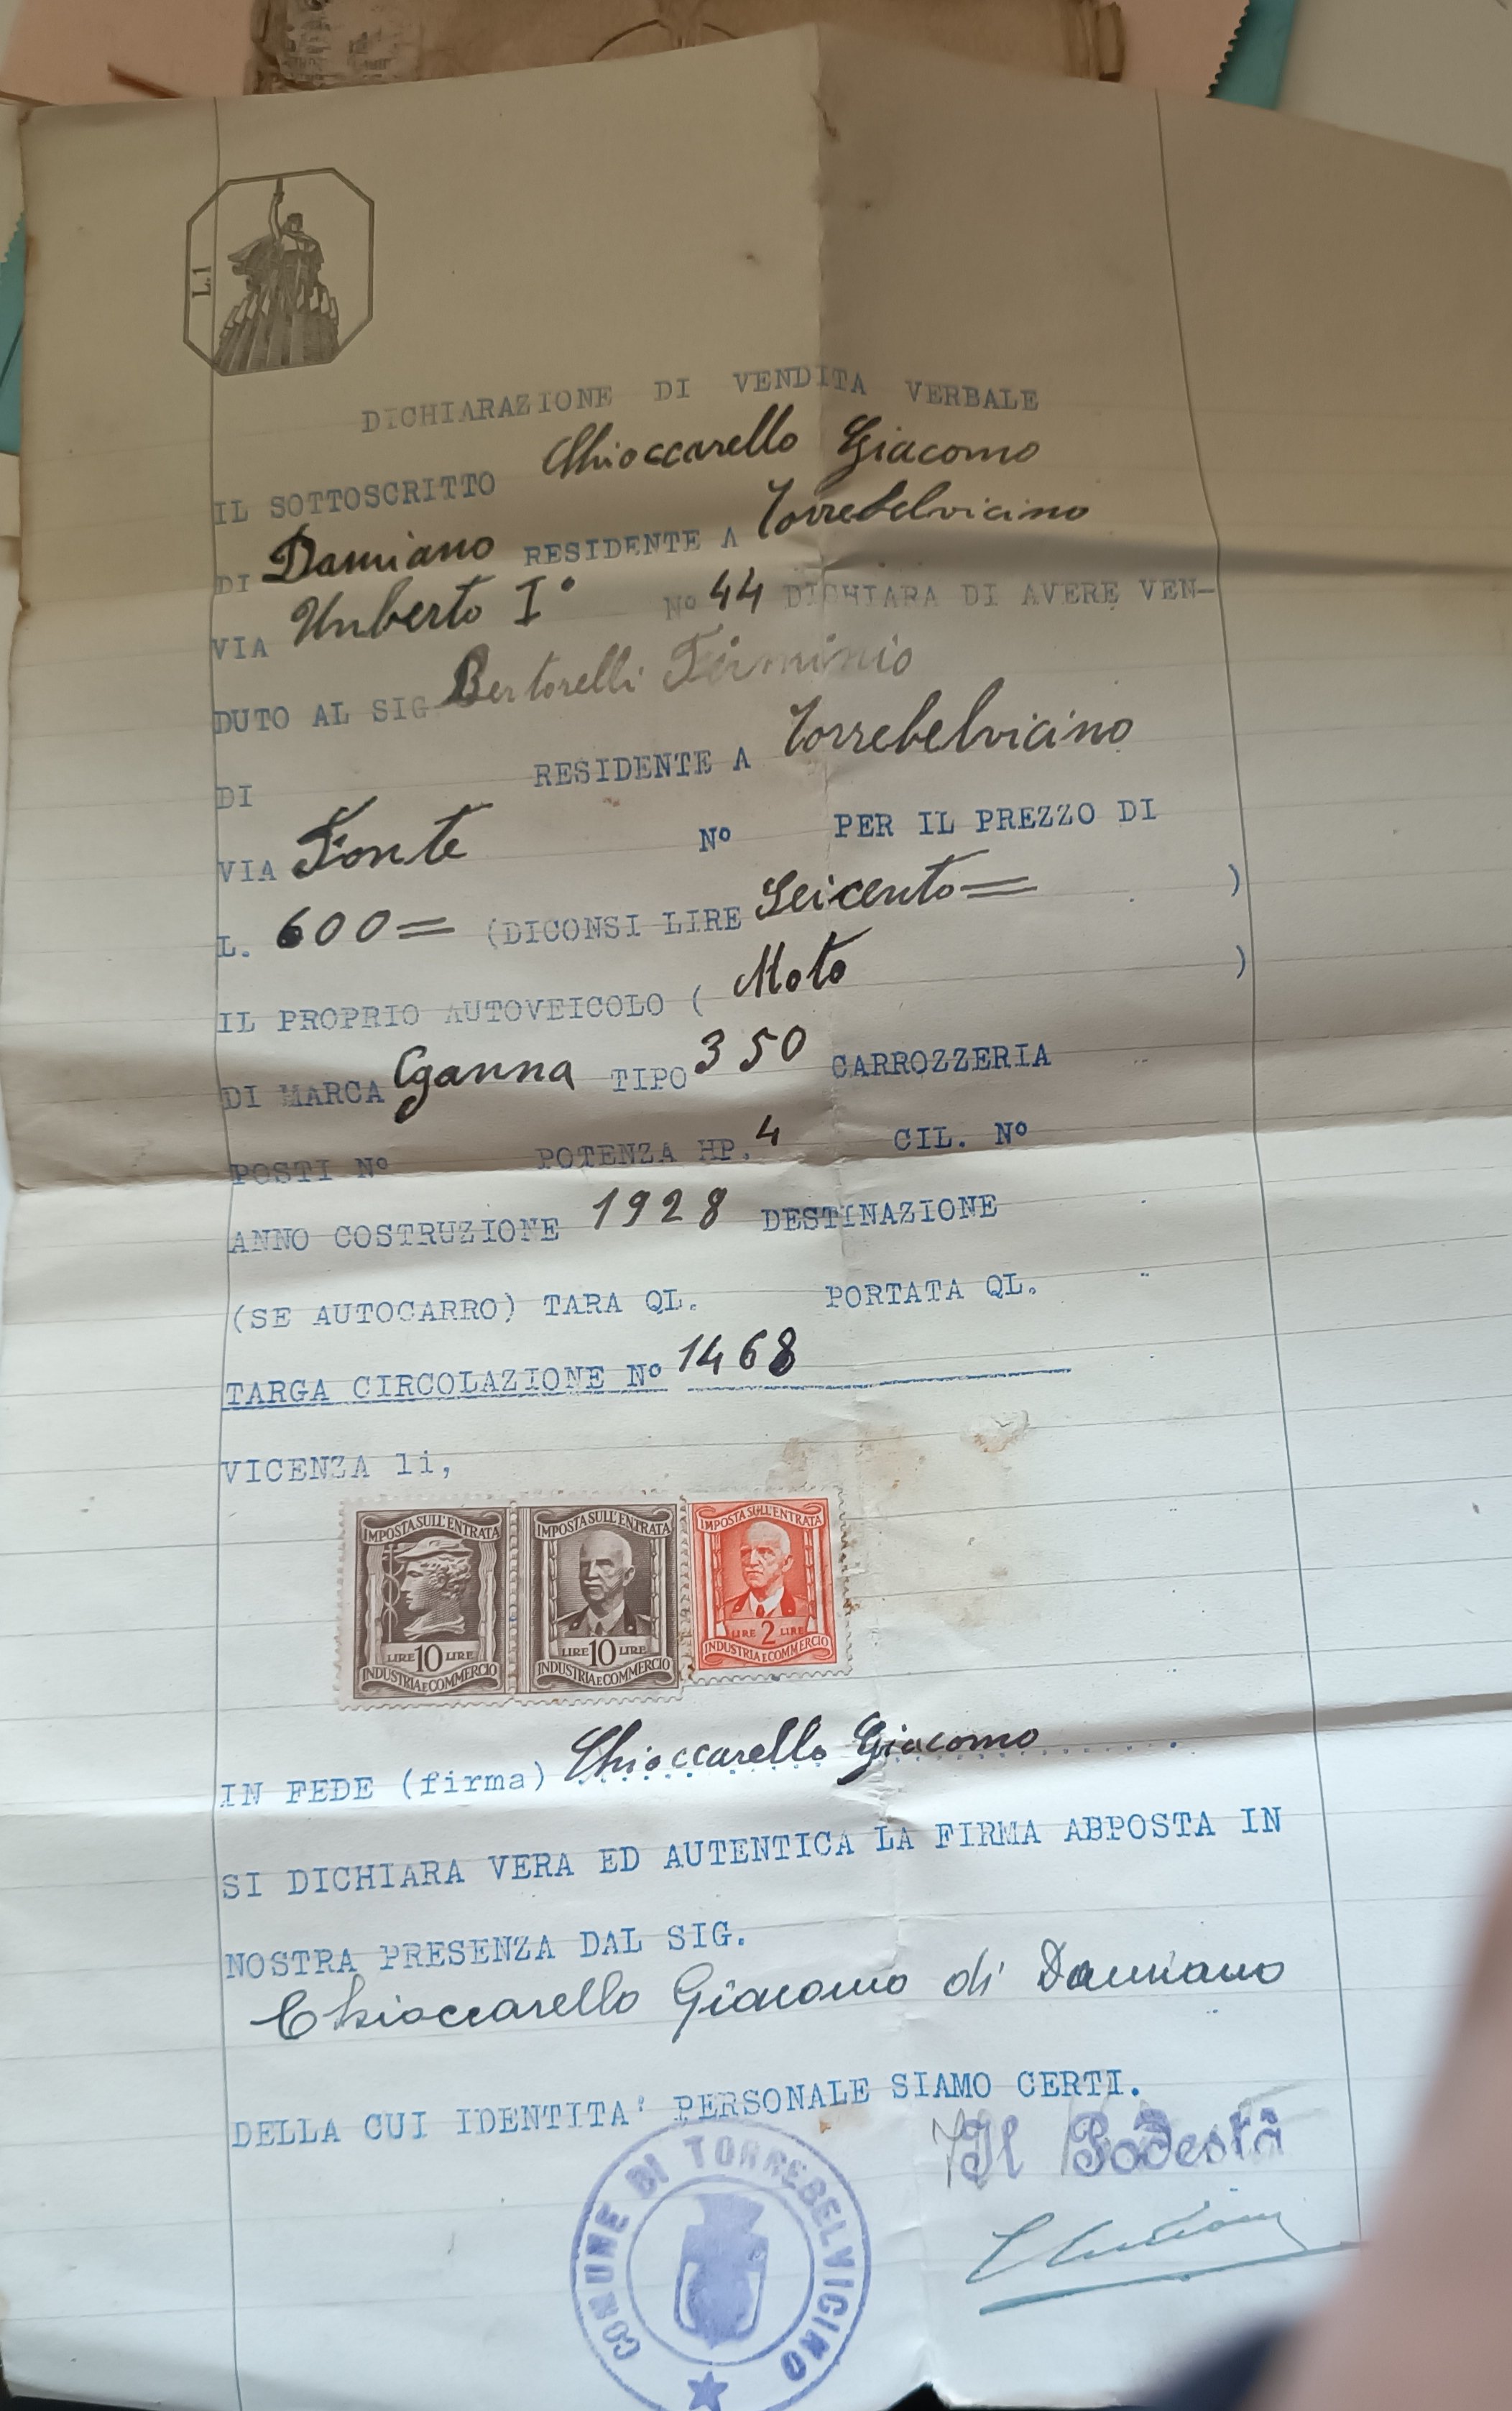 L.1
DICHIARAZIONE DI VENDITA VERBALE
IL SOTTOSCRITTO Chioccarello Giacomo
DI Damiano RESIDENTE A Torrebelvicino
VIA Umberto I° N° 44 DICHIARA DI AVERE VEN-
DUTO AL SIG Bertorelli Firminio
DI RESIDENTE A Torrebelvicino
VIA Fonte N° PER IL PREZZO DI
L. 600= (DICONSI LIRE Seicento= )
IL PROPRIO AUTOVEICOLO ( Moto )
DI MARCA Ganna TIPO 350 CARROZZERIA
POSTI N° POTENZA HP. 4 CIL. N°
ANNO COSTRUZIONE 1928 DESTINAZIONE
(SE AUTOCARRO) TARA QL. PORTATA QL.
TARGA CIRCOLAZIONE N° 1468
VICENZA li,
IMPOSTA SULL'ENTRATA IMPOSTA SULL'ENTRATA IMPOSTA SULL'ENTRATA
LIRE 10 LIRE LIRE 10 LIRE LIRE 2 LIRE
INDUSTRIA E COMMERCIO INDUSTRIA E COMMERCIO INDUSTRIA E COMMERCIO
IN FEDE (firma) Chioccarello Giacomo
SI DICHIARA VERA ED AUTENTICA LA FIRMA ABPOSTA IN
NOSTRA PRESENZA DAL SIG.
Chioccarello Giacomo di Damiano
DELLA CUI IDENTITA' PERSONALE SIAMO CERTI.
Il Podestà
COMUNE DI TORREBELVICINO